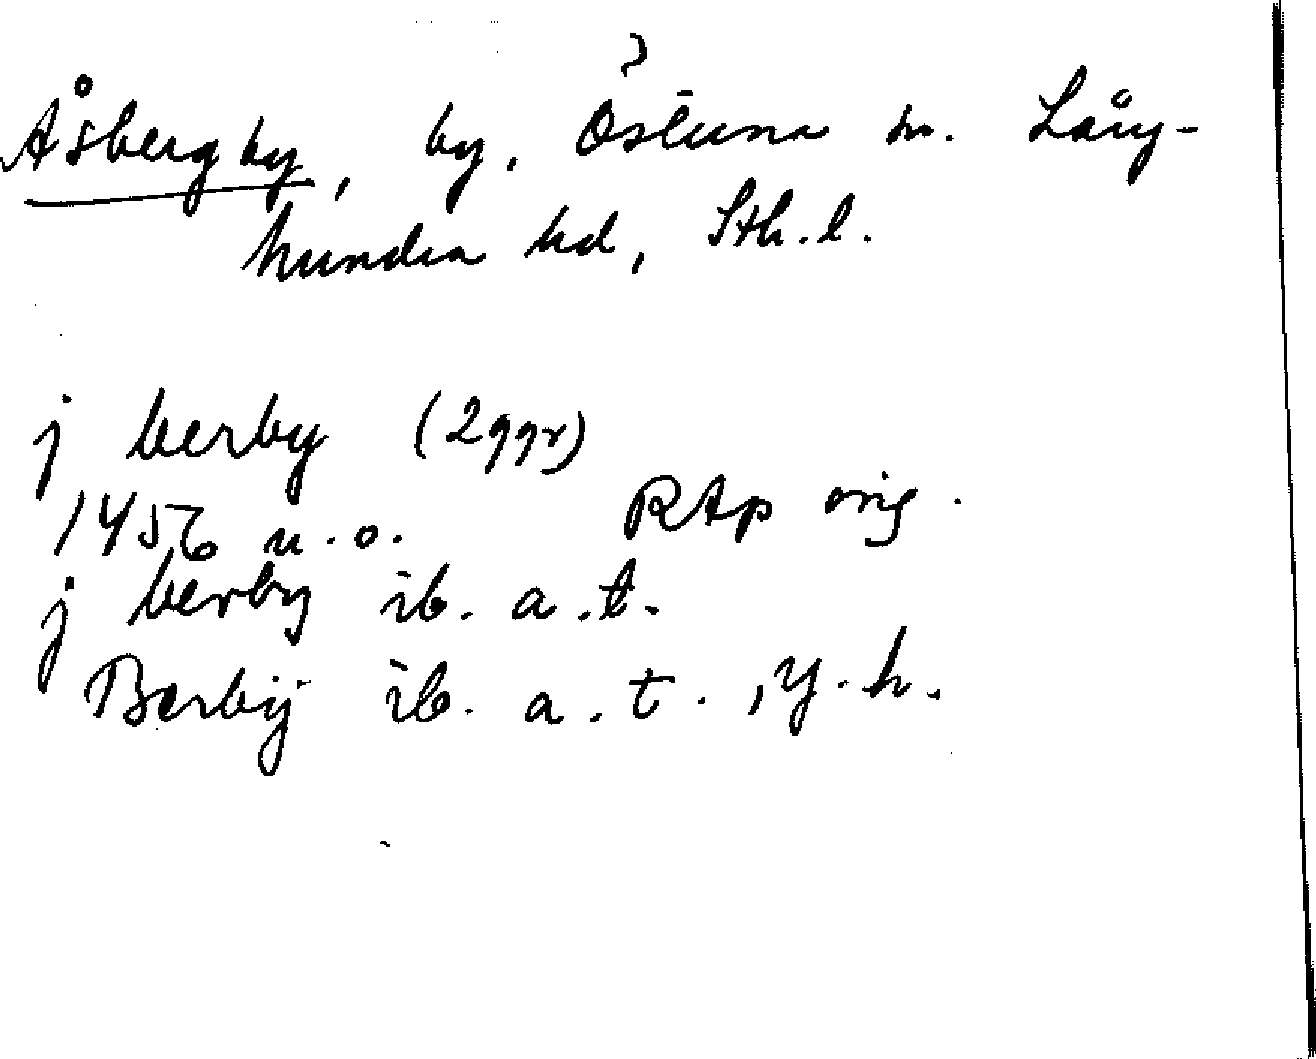 Åsbergby, by, Östuna sn. Lång-
hundra hd, Sth.l.
j berby (2ggr)
1456 u.o. RAp orig.
j berby ib. a.t.
Bærbÿ ib. a.t., y.h.